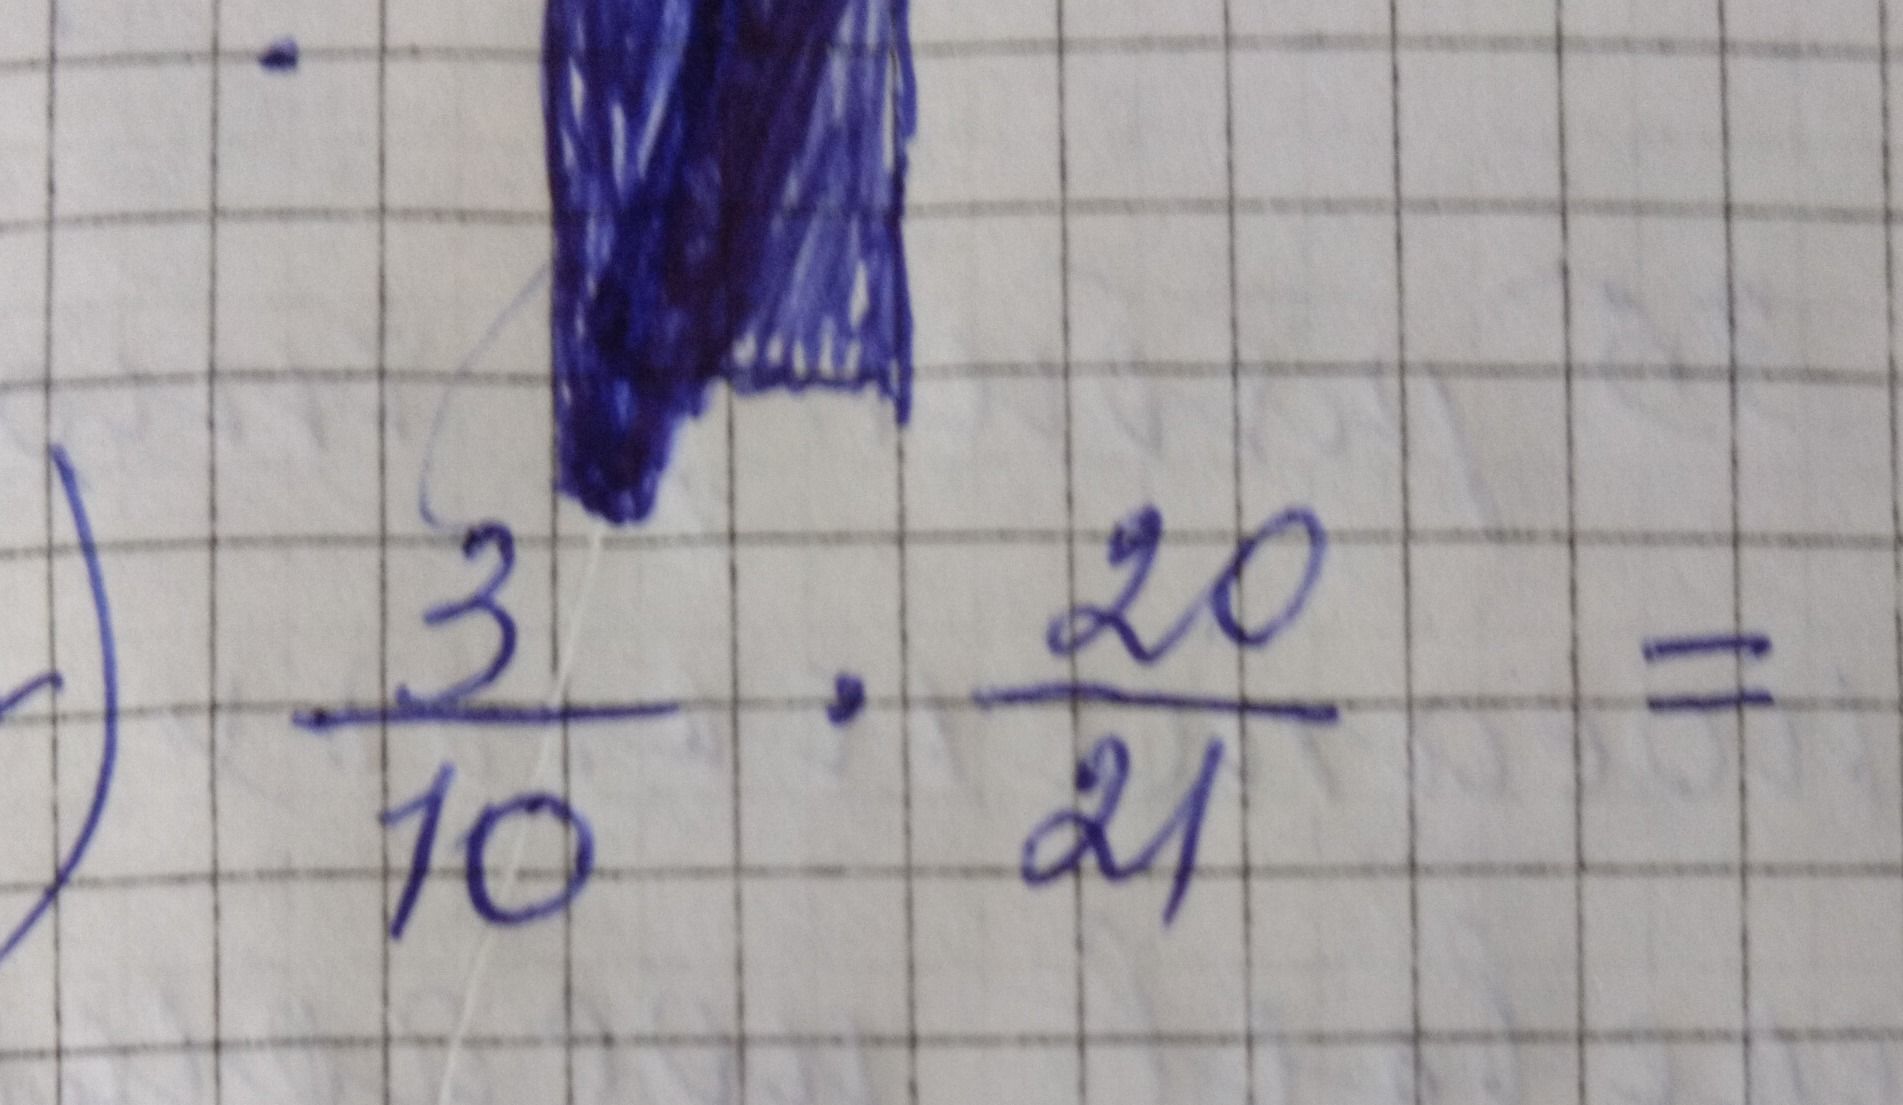 ) 3/10 · 20/21 =